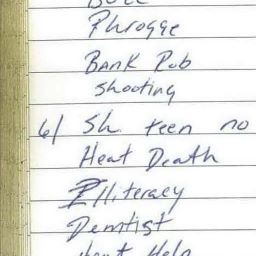 Phrogge
Bank Rob
shooting
6/ Sh. teen no
Heat Death
Illiteracy
Dentist
Help